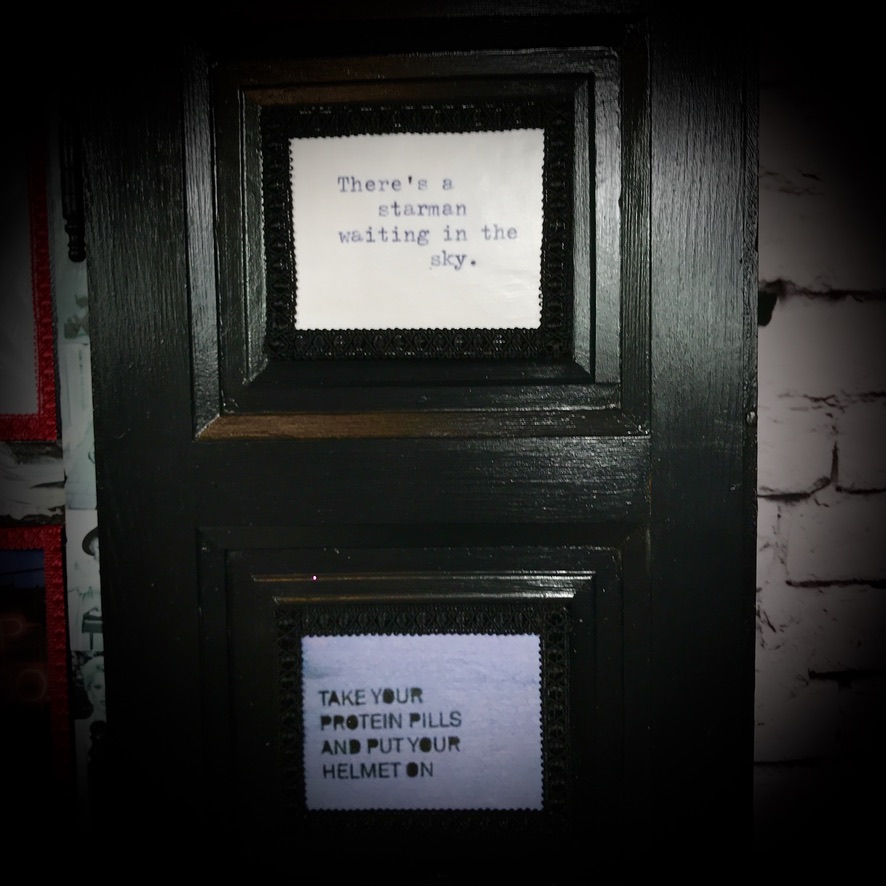 There's a
starman
waiting in the
sky.
TAKE YOUR
PROTEIN PILLS
AND PUT YOUR
HELMET ON